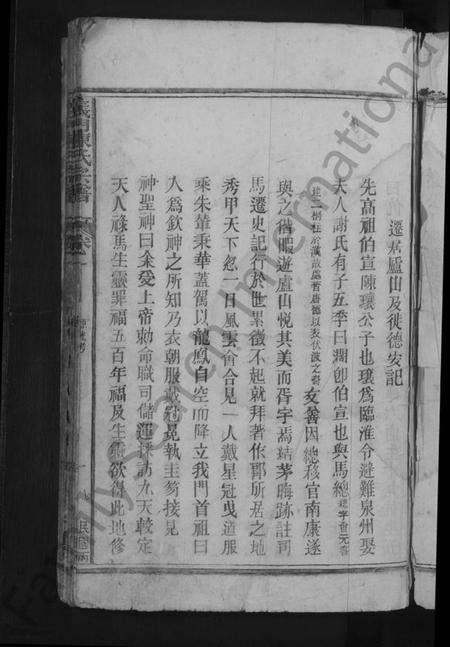 遷居廬山及徙德安記
先高祖伯宣陳瓌公子也瓌為臨淮令避難泉州娶
夫人謝氏有子五季曰渭卽伯宣也與馬總總字會元嘗
建二銅柱於漢故處著唐德以表伏波之裔友善因總移官南康遂
與之偕暇遊廬山悅其美而胥宇焉結茅晦跡註司
馬遷史記行於世累徵不起就拜著作郎所居之地
秀甲天下忽一日風雲會合見一人戴星冠曳道服
乘朱輦秉華蓋駕以龍鳳自空而降立我門首祖曰
人為欽神之所知乃衣朝服戴冠冕執圭笏接見
神聖神曰余受上帝勅命職司儲運採訪九天較定
天人祿馬生靈罪福五百年福及生靈欲得此地修
義門陳氏宗譜
卷
Family International